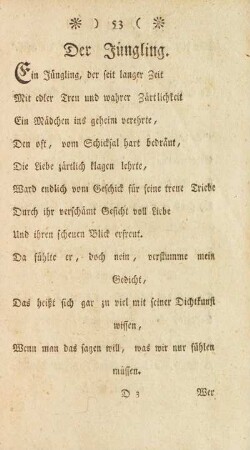 ❊ ) 53 ( ❊
Der Jüngling.
Ein Jüngling, der seit langer Zeit
Mit edler Treu und wahrer Zärtlichkeit
Ein Mädchen ins geheim verehrte,
Den oft, vom Schicksal hart bedräut,
Die Liebe zärtlich klagen lehrte,
Ward endlich vom Geschick für seine treue Triebe
Durch ihr verschämt Gesicht voll Liebe
Und ihren scheuen Blick erfreut.
Da fühlte er, doch nein, verstumme mein
Gedicht,
Das heißt sich gar zu viel mit seiner Dichtkunst
wissen,
Wenn man das sagen will, was wir nur fühlen
müssen.
D 3 Wer